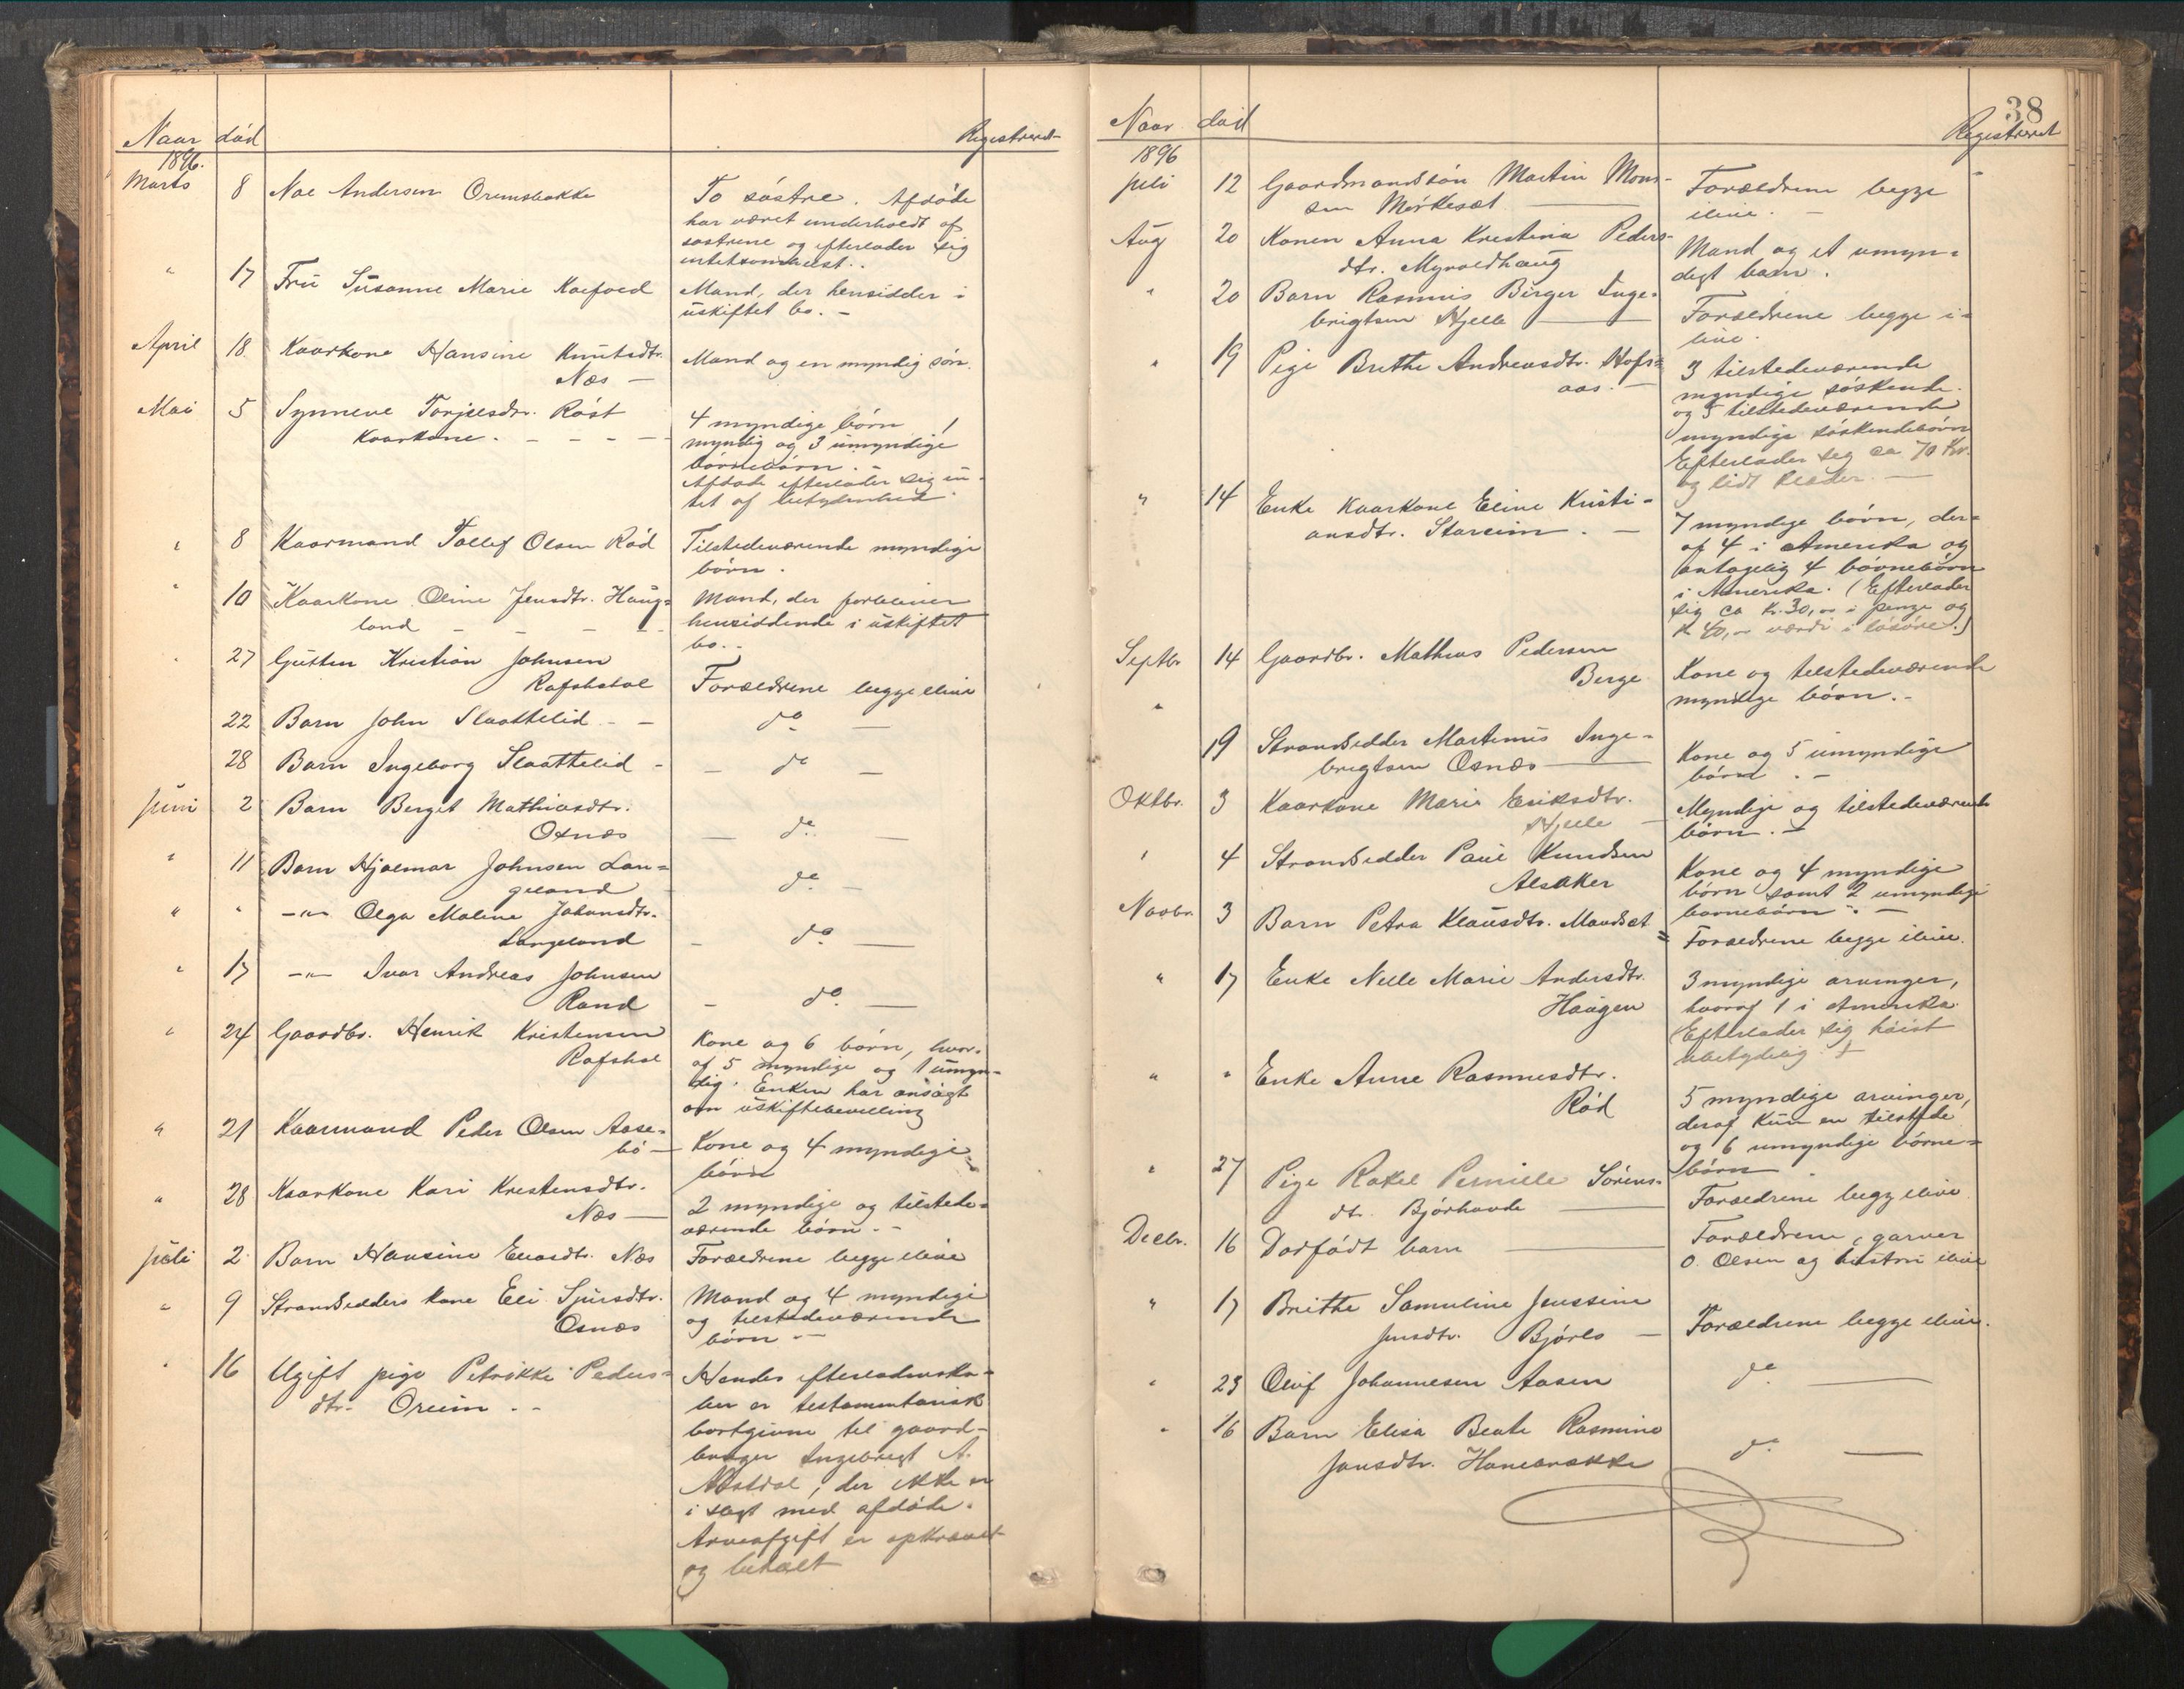 Naar död
Registreret
1896.
Marts 8 Noe Andersen Orumsbakke
To söstre. Afdöde
har været underholdt af
söstrene og efterlader sig
intetsomhelst.
" 17 Frü Süsanne Marie Koefoed
Mand, der hensidder i
üskiftet bo. –
April 18 Kaarkone Hansine Knutsdtr.
Næs –
Mand og en myndig sön.
Mai 5 Synneve Torjusdtr. Röst
Kaarkone. – – – –
4 myndige börn 1
myndig og 3 ümyndige
börnebörn. –
Afdöde efterlader sig in-
tet af betydenhed.
" 8 Kaarmand Tollef Olsen Röd
Tilstedeværende myndige
börn.
" 10 Kaarkone Oline Jensdtr. Haug-
land – – – –
Mand, der forbliver
hensiddende i üskiftet
bo. –
" 27 Gütten Kristian Johnsen
Rafshalal
Forældrene begge ilive
22 Barn John Slaattelid – –
do –
28 Barn Ingeborg Slaattelid –
– do –
Juni 2 Barn Berget Mathiasdtr.
Osnæs
– do. –
" 11 Barn Hjalmar Johnsen Lan-
geland
do. –
" " –"– Olga Maline Johansdtr.
Langeland
– do. –
" 17 –"– Ivar Andreas Johnsen
Rand
– do. –
" 24 Gaardbr. Henrik Kristensen
Rafshal
Kone og 6 börn, hvor-
af 5 myndige og 1 ümyn-
dig. Enken har ansögt
om üskiftebevilling
" 21 Kaarmand Peder Olsen Aase-
bö –
Kone og 4 myndige
börn
" 28 Kaarkone Kari Krestensdtr.
Næs –
2 myndige og tilstede-
værende börn. –
Juli 2 Barn Hansine Eliasdtr. Næs
Forældrene begge ilive
" 9 Strandsidders kone Eli Sjursdtr.
Osnæs
Mand og 4 myndige
og tilstedeværende
börn –
" 16 Ugift pige Petrikke Peders-
dtr. Oreim. –
Hendes efterladenska-
ber er testamentarisk
bortgivne til gaard-
bruger Ingebregt A.
Nöstdal, der ikke er
i slægt med afdöde.
Arveafgift er opkrævet
og betalt
38
Naar död
Registreret
1896
Juli 12 Gaardmandssön Martin Mons-
sen Mörkesæt –
Forældrene begge
ilive. –
Aug 20 Konen Anna Kristina Peders-
dtr. Myroldhaug
Mand og et umyn-
digt barn.
" 20 Barn Rasmus Birger Inge-
brigtsen Hjelle –
Forældrene begge i-
live.
" 19 Pige Brithe Andreasdtr. Hofs-
aas. –
3 tilstedeværende
myndige söskende
og 5 tilstedeværende
myndige söskendebörn
Efterlader seg ca 70 Kr.
og lidt klæder. –
" 14 Enke Kaarkone Eline Kristi-
ansdtr. Stareim. –
7 myndige börn, der-
af 4 i Amerika og
antagelig 4 börnebörn
i Amerika. (Efterlader
sig ca Kr. 30,00 i penge og
K 40,– værdi i lösöre.)
Septbr. 14 Gaardbr. Mathias Pedersen
Berge
Kone og tilstedeværende
myndige börn. –
" 19 Strandsidder Martinus Inge-
brigtsen Osnæs –
Kone og 5 ümyndige
börn. –
Oktbr. 3 Kaarkone Marie Eriksdtr.
Hjelle –
Myndige og tilstedeværende
börn. –
" 4 Strandsidder Paul Knudsen
Alsaker
Kone og 4 myndige
börn samt 2 umyndige
barnebörn. –
Novbr. 3 Barn Petra Klausdtr. Maurset
Forældrene begge ilive.
" 17 Enke Nille Marie Andersdtr.
Haugen
3 myndige arvinger,
hvoraf 1 i Amerika.
Efterlader sig höist
ubetydelig.
" " Enke Anne Rasmusdtr.
Röd
5 myndige arvinger,
deraf kün en tilstede
og 6 umyndige börne-
börn
" 27 Pige Rakel Pernille Sörens-
dtr. Björhovde –
Forældrene begge ilive
Decbr. 16 Dödfödt barn –
Forældrene, garver
O. Olsen og hüstru ilive
" 17 Brithe Samuline Jenssine
Jensdtr. Björlo –
Forældrene begge ilive.
" 23 Oluf Johannesen Aasen
do. –
" 16 Barn Elisa Beate Rasmine
Jansdtr. Hanebrække
do –